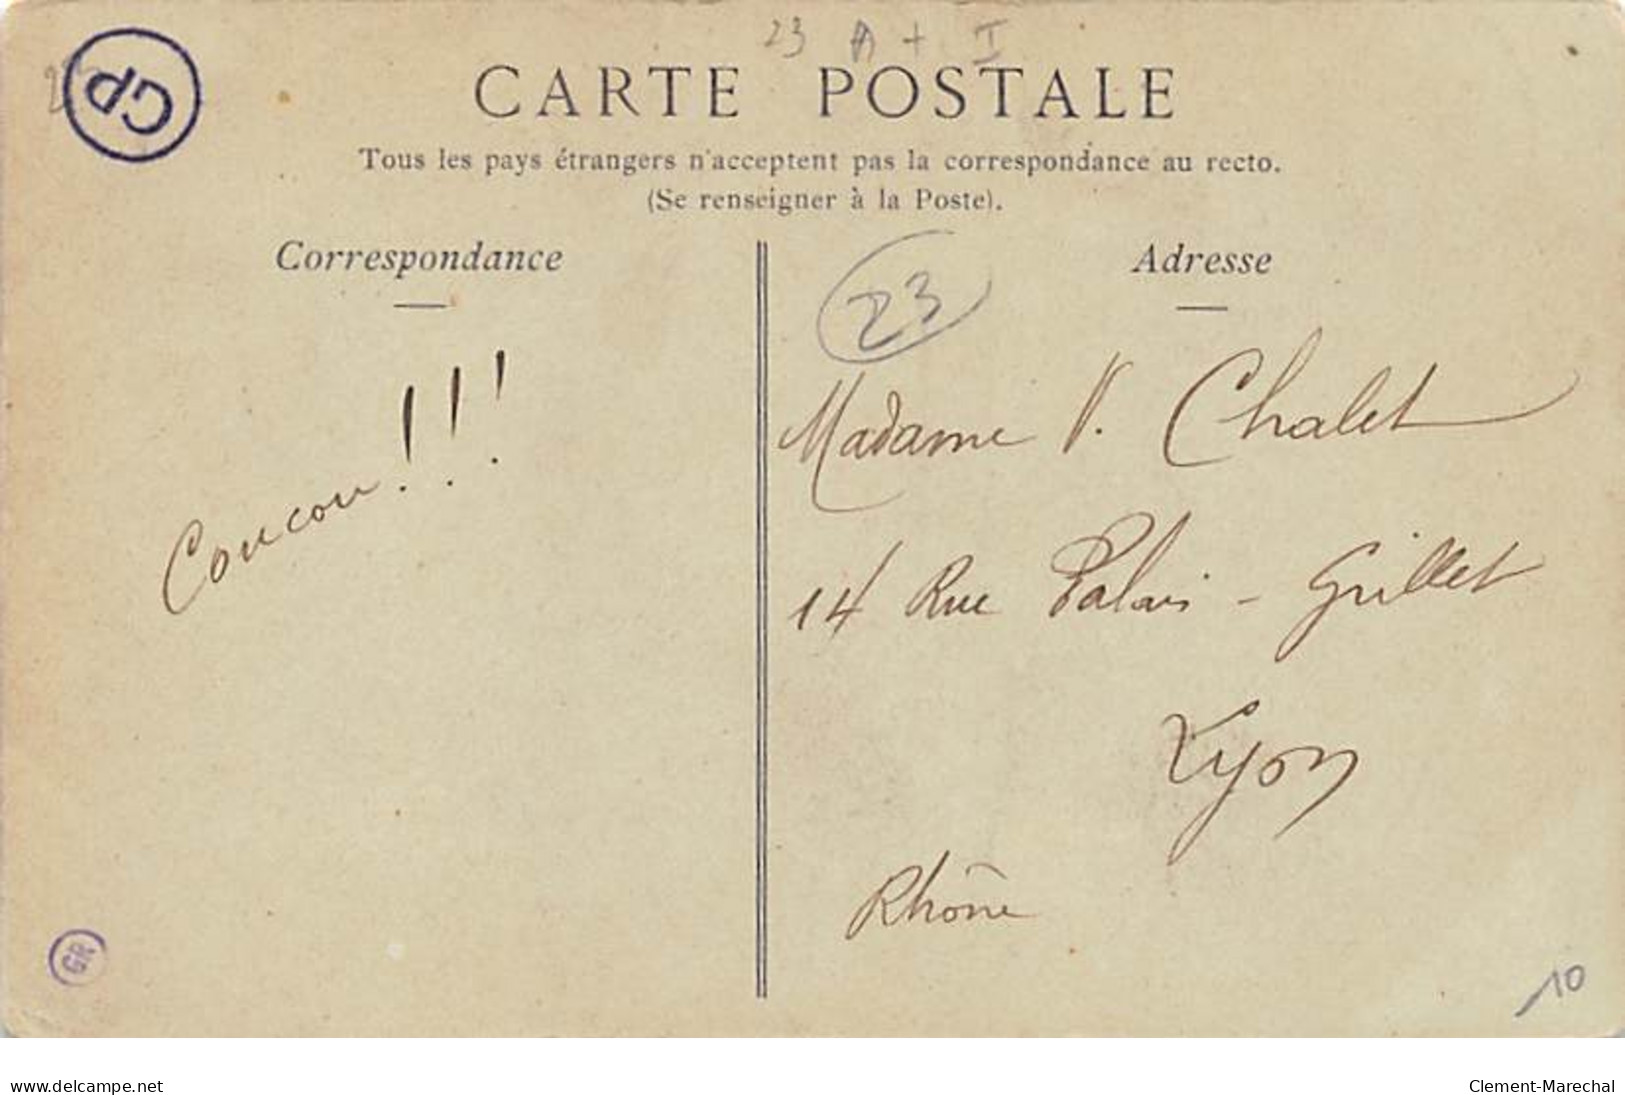 23 A + I
GP
CARTE POSTALE
Tous les pays étrangers n'acceptent pas la correspondance au recto.
(Se renseigner à la Poste).
Correspondance
Adresse
23
Coucou!!!
Madame V. Chalet
14 Rue Palais - Grillet
Lyon
Rhône
GR
10
delcampe.net
Clement-Marechal